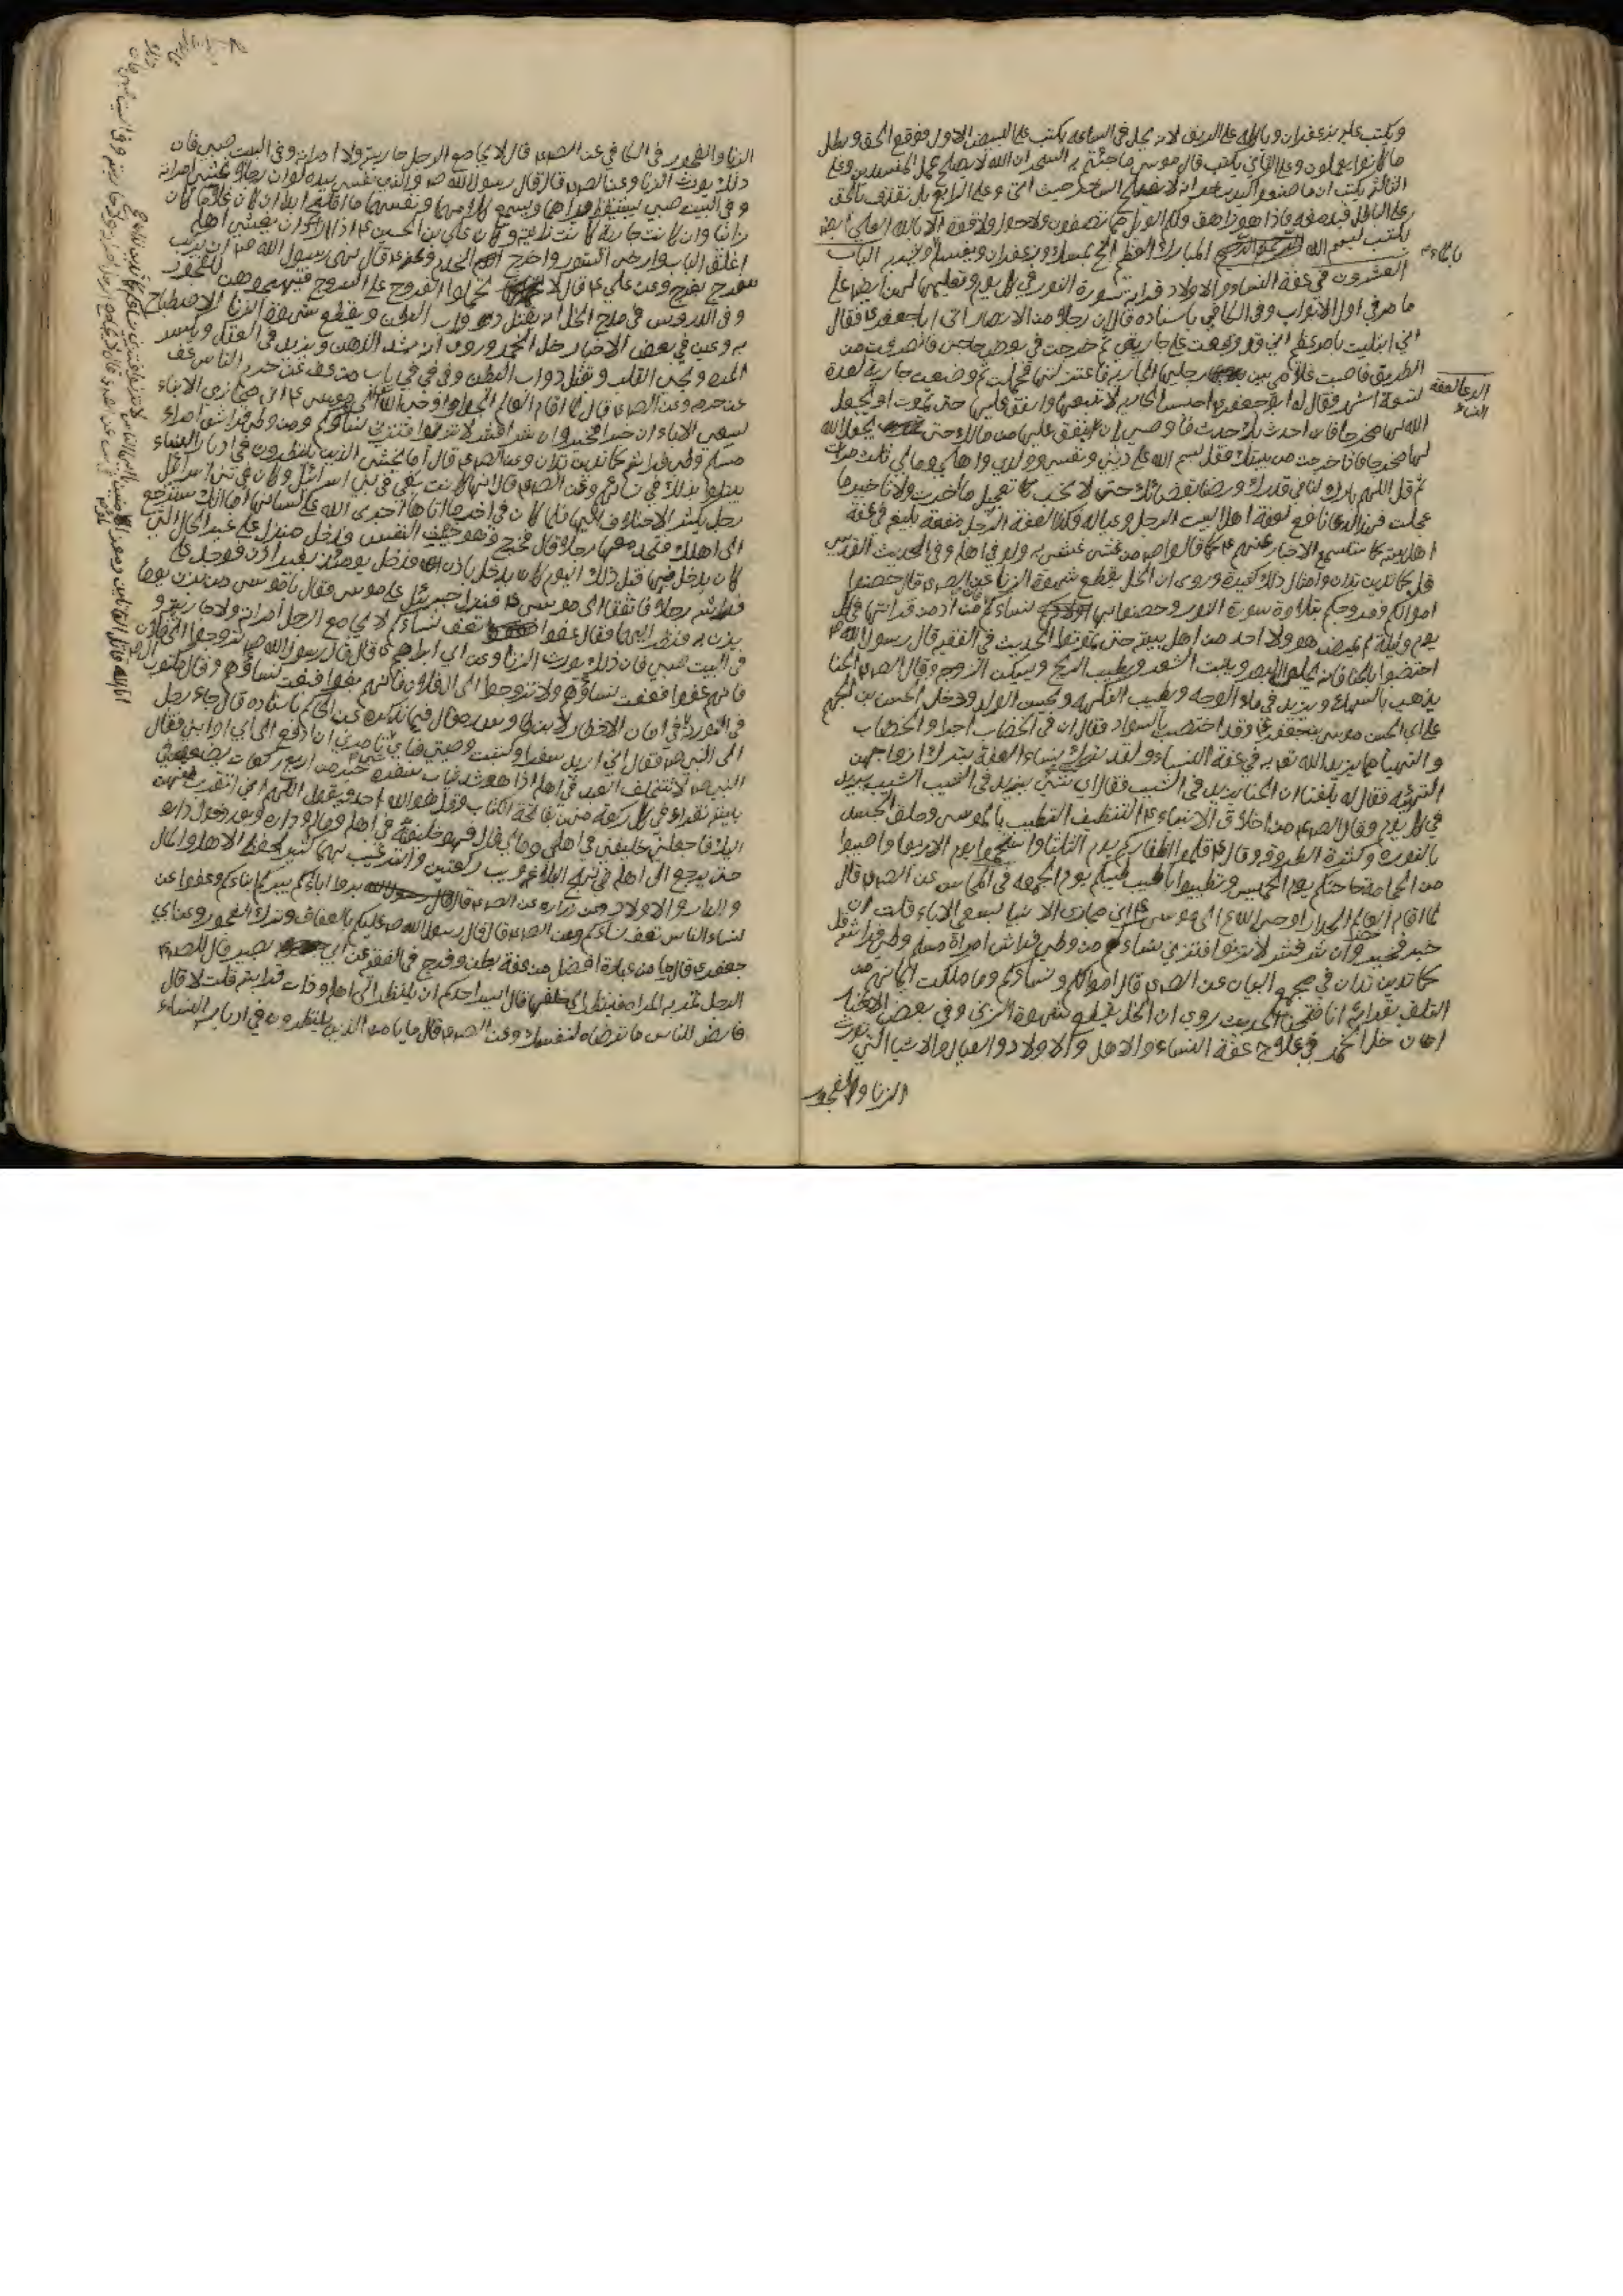 ويكتب عليه بزعفران وياكله على الريق لانه يحل في الساعة يكتب على البيض الاول فوقع الحق وبطل
ما كانوا يعملون وعلى الثاني يكتب قال موسى ما جئتم به السحر ان الله لا يصلح عمل المفسدين وعلى
الثالث يكتب ان ما صنعوا كيد ساحر ولا يفلح الساحر حيث اتى وعلى الرابع بل نقذف بالحق
على الباطل فيدمغه فاذا هو زاهق ولكم الويل مما تصفون ولا حول ولا قوة الا بالله العلي
يكتب بسم الله الرحمن الرحيم المبارك بمسك وزعفران ويغسله الباب
العشرون في عفة النساء والاولاد قراءة سورة النور في كل يوم وتعليمها لهن على
ما مر في اول الابواب وفي الكافي باسناده قال ان رجلا من الانصار اتى ابا جعفر ع فقال
اني ابتليت بامر عظيم اني وقعت على جاريتي ثم خرجت في بعض حوائجي فانصرفت من
الطريق فاصبت غلامي بين رجليها الجارية فاعتزلتها فحملت ثم وضعت جارية لعدة
تسعة اشهر فقال له ابو جعفر ع احبس الجارية لا تبعها وانفق عليها حتى تموت او يجعل
الله لها مخرجا فان احدث بك حدث فاوصي ان ينفق عليها من مالك حتى يجعل الله
لها مخرجا فاذا خرجت من بيتك فقل بسم الله على ديني ونفسي وولدي واهلي ومالي ثلث مرات
ثم قل اللهم بارك لنا في قدرك ورضنا بقضائك حتى لا نحب تعجيل ما اخرت ولا تاخير ما
عجلت فهذا الدعا نافع لعفة اهل البيت الرجل وعياله وكذا لعفة الرجل منفعة بليغ في عفة
اهل بيته
قل كما تدين تدان وامثال ذلك كثيرة وروى ان الخل يقطع شهوة الزنا عن الص ع قال حصنوا
اموالكم وفروجكم بتلاوة سورة النور وحصنوا بها نساءكم فان من ادمن قراءتها في كل
يوم وليلة لم يصب هو ولا احد من اهل بيته حتى يموت الحديث في الفقيه قال رسول الله ص
اختضبوا بالحنا فانه يجلو البصر وينبت الشعر ويطيب الريح ويسكن الزوجة وقال الص ع الحنا
يذهب بالسهك ويزيد في ماء الوجه ويطيب النكهة ويحسن الولد ودخل الحسن بن الجهم
على ابي الحسن موسى بن جعفر ع وقد اختضب بالسواد فقال ان في الخضاب اجرا والخضاب
والتهيئة مما يزيد الله تعالى به في عفة النساء ولقد ترك نساء العفة بترك ازواجهن
التهيئة فقال له بلغنا ان الحنا يزيد في الشيب فقال اي شيء يزيد في الشيب الشيب يزيد
في كل يوم وقال الص ع من اخلاق الانبياء ع التنظيف التطيب بالموسى وحلق الجسد
بالنورة وكثرة الطروقة وقال ع قلموا اظفاركم يوم الثلثا واستحموا يوم الاربعا واصيبوا
من الحجامة حاجتكم يوم الخميس وتطيبوا باطيب طيبكم يوم الجمعة في المحاسن عن الص ع قال
لما اقام العالم الجدار اوحى الله الى موسى ع اني مجازي الابنا بسعي الاباء
خير فخير وان شر فشر لا تزنوا فتزني نساءكم ومن وطى فراش امراة مسلم وطى فراشه
كما تدين تدان في مجمع البيان عن الص ع قال اموالكم ونساءكم وما ملكت ايمانهم من
التلف بقراءة انا فتحنا الحديث روي ان الخل يقطع شهوة الزنى وفي بعض الاخبار
خل الخمر في علاج عفة النساء والاهل والاولاد والعيال والاشيا التي تورث
الزنا والفجور
الدعا لعفة
النساء
الزنا والفجور في الكافي عن الص ع قال لا يجامع الرجل جاريته ولا امراته وفي البيت صبي فان
ذلك يورث الزنا وعن الص ع قال قال رسول الله ص والذي نفسي بيده لو ان رجلا غشي امراته
وفي البيت صبي مستيقظ يراهما ويسمع كلامهما ونفسهما ما افلح ابدا ان كان غلاما كان
زانيا وان كانت جارية كانت زانية وكان علي بن الحسين ع اذا اراد ان يغشى اهله
اغلق الباب وارخى الستور واخرج الخدم وعنه ع قال نهى رسول الله ص ان يركب
سرج بفرج وعن علي ع قال لا تحملوا الفروج على السروج فتهيجوهن للفجور
وفي الدروس في مدح الخل انه يقتل دواب البطن ويقطع شهوة الزنا الاصطباغ
به وعن في بعض الاخبار خل الخمر وروى انه يشد الذهن ويزيد في العقل ويكسر
المرة ويحيي القلب وتقتل دواب البطن وفي باب من عف عن حرم الناس عف
عن حرمه وعن الص ع قال لما اقام العالم الجدار اوحى الله الى موسى ع اني مجازي الابناء
بسعي الاباء ان خيرا فخير وان شرا فشر لا تزنوا فتزني نساؤكم ومن وطى فراش امراة
مسلم وطى فراشه كما تدين تدان وعن الص ع قال اما يخشى الذين ينظرون في ادبار النساء
يبتلوا بذلك في نسائهم وعن الص ع قال انها كانت بغي في بني اسرائيل وكان في بني اسرائيل
رجل يكثر الاختلاف اليها فلما كان في اخر ما اتاها اجرى الله على لسانها اما انك سترجع
الى اهلك فتجد معها رجلا قال فخرج وهو خبيث النفس فدخل منزله على غير الحال التي
كان يدخل فيها قبل ذلك اليوم كان يدخل باذن فدخل يومئذ بغير اذن فوجد على
فراشه رجلا فارتفعا الى موسى ع فنزل جبرئيل على موسى فقال يا موسى من يزن يوما
يزن به فنظر اليهما فقال عفوا تعف نساءكم لا يجامع الرجل امراته ولا جاريته و
في البيت صبي فان ذلك يورث الزنا وعن ابي ابراهيم ع قال قال رسول الله ص تزوجوا الى فلان
فانهم عفوا فعفت نساؤهم ولا تزوجوا الى ال فلان فانهم بغوا فبغت نساؤهم وقال مكتوب
في التورية
الى النبي ص فقال اني اريد سفرا وكتبت وصيتي فالى من تامرني ان ادفع الى ابي او ابني فقال
النبي ص لا يستخلف العبد في اهله اذا هو شد ثياب سفره خير من اربع ركعات يضعهن في
بيته يقراء في كل ركعة منهن فاتحة الكتاب وقل هو الله احد ويقول اللهم اني اتقرب بهن
اليك فاجعلهن خليفتي في اهلي ومالي قال فهو خليفته في اهله وماله وداره
حتى يرجع الى اهله
والدار والاولاد وعن زرارة عن الص ع قال قال رسول الله بروا اباءكم يبركم ابناءكم وعفوا عن
نساء الناس تعف نساءكم وعن الص ع قال قال رسول الله ص عليكم بالعفاف وترك الفجور وعن ابي
جعفر ع قال ما من عبادة افضل من عفة بطن وفرج في الفقيه عن ابي بصير قال للص ع
الرجل تمر به المراة فينظر الى خلفها قال ايسر احدكم ان ينظر الى اهله وذات قرابته قلت لا قال
فارض للناس ما ترضاه لنفسك وعن الص ع قال ما يامن الذين ينظرون في ادبار النساء